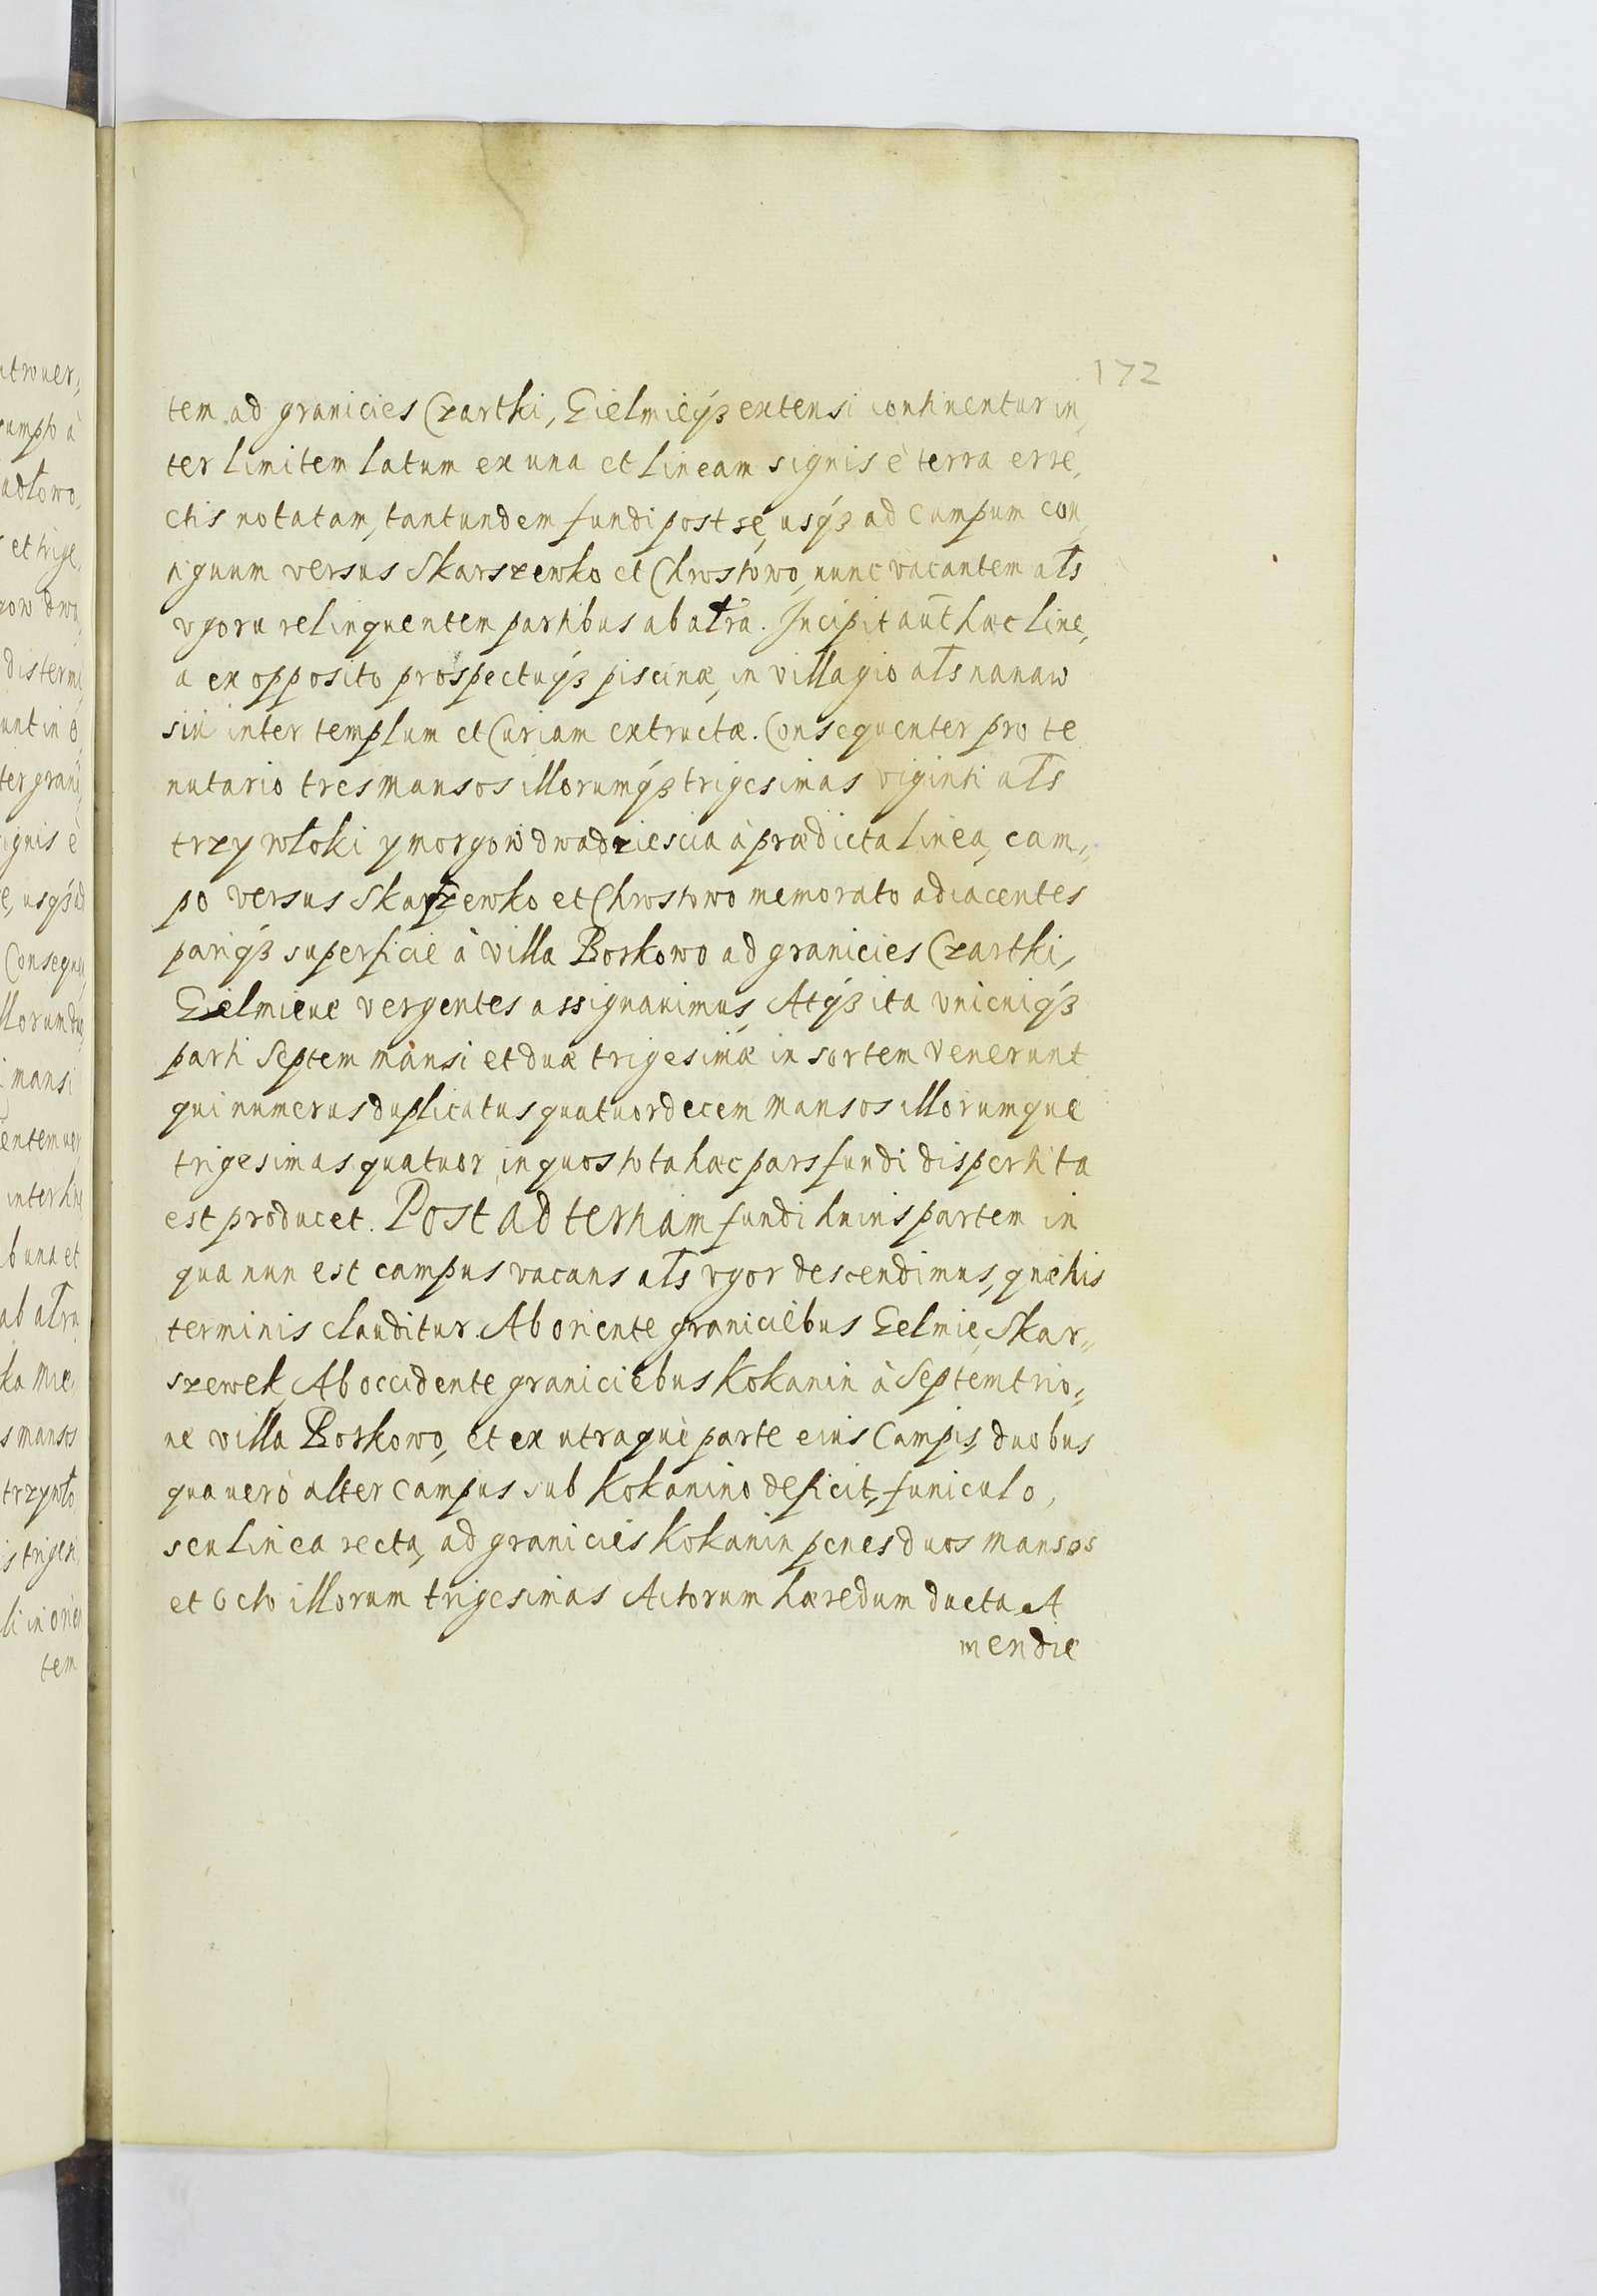 172
tem ad granicies Czartki, Eielmieq́ꝫ extensi continentur in,
ter limitem latum ex una et lineam signis è terra erre,
ctis notatam, tantundem fundi post sé, usq́ꝫ ad Campum con,
tiguum versus Skarszewko et Chrostowo, nunc vacantem als̄
vgoru relinquentem partibus ab altra. Incipit aut̄ hæc line,
a ex opposito prospectuq́ꝫ piscinæ, in villagio als̄ na naw
siu inter templum et Curiam extructæ. Consequenter pro te
nutario tres mansos illorumq́ꝫ trigesimas viginti als̄
trzy włoki y morgow dwadziescia à prædicta linea, cam,,
po versus Skarszewko et Chrostowo memorato adiacentes
pariq́ꝫ superficie à villa Borkowo ad granicies Czartki,
Eielmieue vergentes assignauimus, Atq́ꝫ ita vnicuiq́ꝫ
parti Septem mansi et duæ trigesimæ in sortem Venerunt
qui numerus duplicatus quatuordecem mansos illorumque
trigesimas quatuor, in quos tota hæc pars fundi dispertita
est producet. Post ad tertiam fundi huius partem in
qua nun est campus vacans als̄ vgor descendimus, quæ his
terminis clauditur. Ab oriente graniciebus Eelmie, Skar,,
szewek, Ab occidente graniciebus Kokanin à Septemtrio,,
ne villa Borkowo, et ex utraque parte eius Campis, duobus
qua uerò alter Campus sub Kokanino deficit, funiculo,
seu linea recta, ad granicies Kokanin penes duos mansos
et Octo illorum trigesimas Actorum hæredum ducta. A
meridie